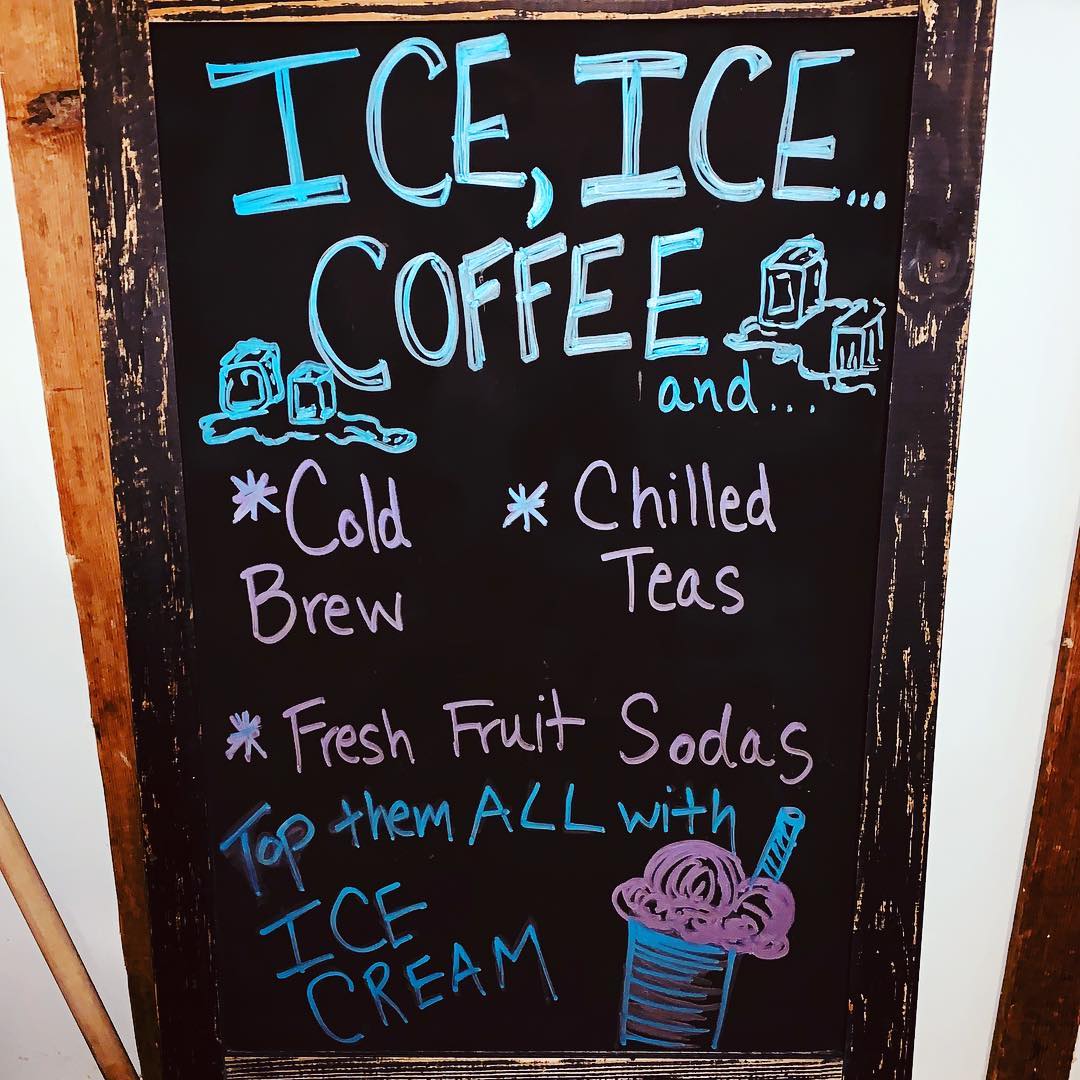 ICE, ICE...
COFFEE
and...
*Cold * Chilled
Brew Teas
* Fresh Fruit Sodas
Top them ALL with
ICE
CREAM